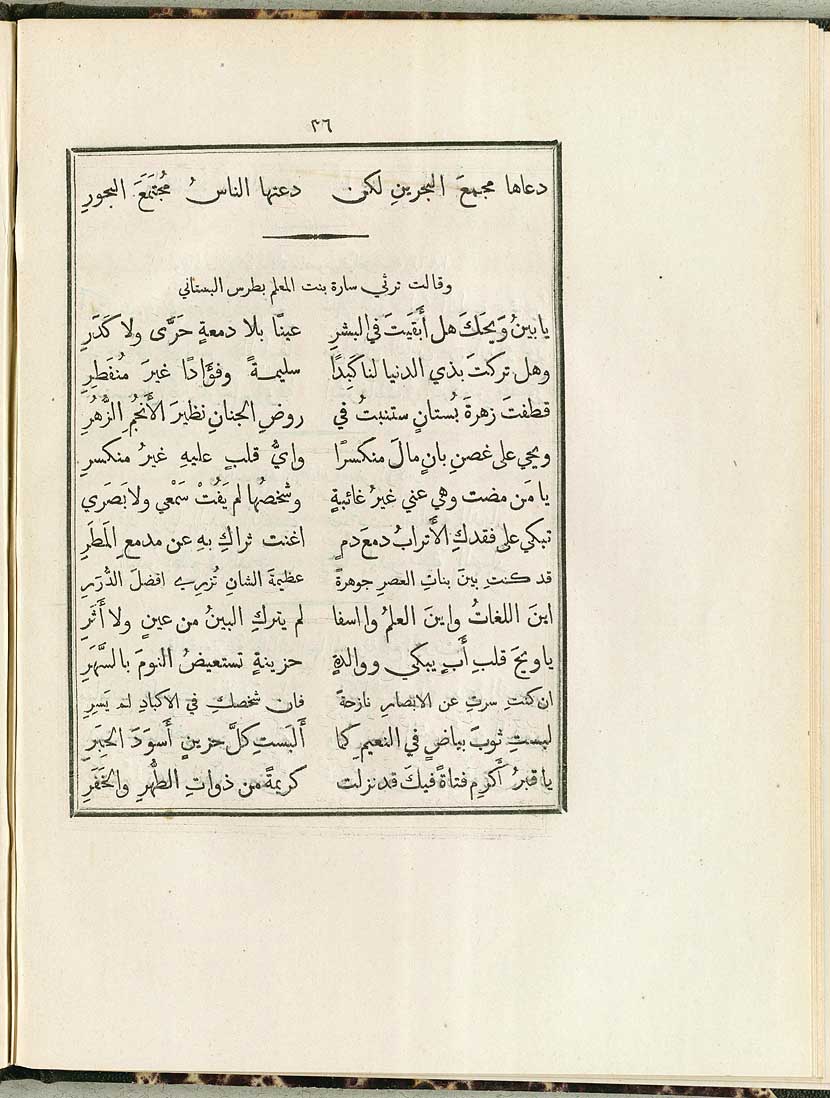 ٣٦
دعاها مجمعَ البحرينِ لكن دعتها الناسُ مُجتَمَعَ البحورِ
وقالت ترثي سارة بنت المعلم بطرس البستاني
يا بينُ وَيحَكَ هل أَبقَيتَ في البشرِ عينًا بلا دمعةٍ حَرَّى ولا كَدَرِ
وهل تركتَ بذي الدنيا لنا كَبِدًا سليمةً وفؤَادًا غيرَ مُنفَطِرِ
قطفتَ زهرةَ بُستانٍ ستنبتُ في روضِ الجنانِ نظيرَ الأَنجُمِ الزُّهُرِ
ويحي على غصنِ بانٍ مالَ منكسرًا وايُّ قلبٍ عليهِ غيرُ منكسرِ
يا مَن مضت وهي عني غيرُ غائبةٍ وشخصُها لم يَفُتْ سَمْعي ولا بَصَري
تبكي على فقدكِ الأَترابُ دمعَ دمٍ اغنت ثراكِ بهِ عن مدمعِ المَطَرِ
قد كنتِ بينَ بناتِ العصرِ جوهرةً عظيمةَ الشانِ تُزرِي افضلَ الدُّرَرِ
اينَ اللغاتُ واينَ العلمُ وا اسفا لم يتركِ البينُ من عينٍ ولا أَثَرِ
يا ويحَ قلبِ أَبٍ يبكي ووالدةٍ حزينةٍ تستعيضُ النومَ بالسَّهَرِ
ان كنتِ سرتِ عن الابصارِ نازحةً فان شخصكِ في الاكبادِ لم يَسِرِ
لبستِ ثوبَ بياضٍ في النعيمِ كما أَلبَستِ كلَّ حزينٍ أَسوَدَ الحِبَرِ
يا قبرُ أَكرِم فتاةً فيكَ قد نزلت كريمةً من ذواتِ الطُّهرِ والخَفَرِ